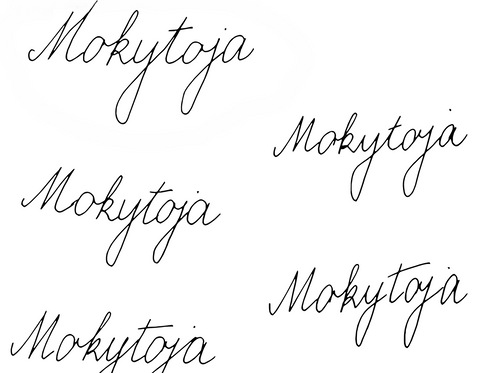 Mokytoja
Mokytoja
Mokytoja
Mokytoja
Mokytoja